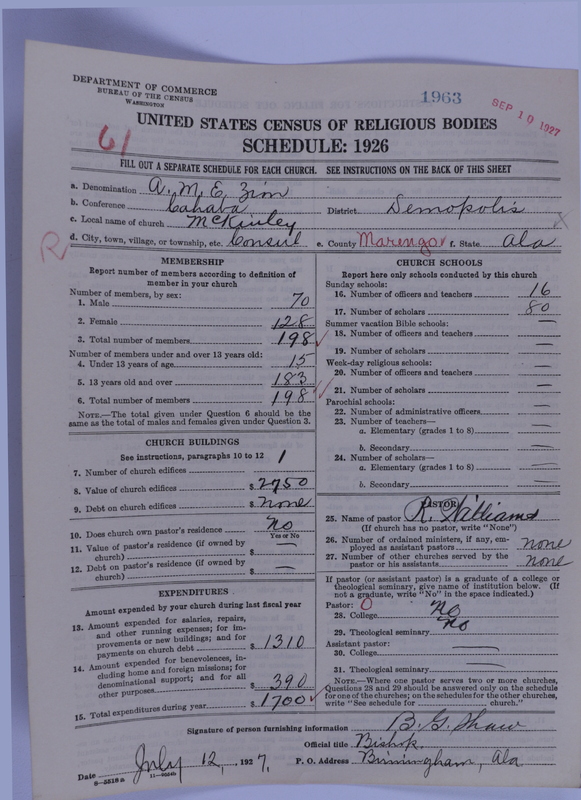 DEPARTMENT OF COMMERCE
BUREAU OF THE CENSUS
WASHINGTON
1963
SEP 10 1927
61
UNITED STATES CENSUS OF RELIGIOUS BODIES
SCHEDULE: 1926
FILL OUT A SEPARATE SCHEDULE FOR EACH CHURCH. SEE INSTRUCTIONS ON THE BACK OF THIS SHEET
a. Denomination A. M. E. Zion
b. Conference Cahaba District Demopolis
c. Local name of church McKinley
R
d. City, town, village, or township, etc. Consul e. County Marengo f. State Ala
MEMBERSHIP
Report number of members according to definition of
member in your church
Number of members, by sex:
1. Male 70
2. Female 128
3. Total number of members 198
Number of members under and over 13 years old:
4. Under 13 years of age 15
5. 13 years old and over 183
6. Total number of members 198
NOTE.—The total given under Question 6 should be
same as the total of males and females given under Question 3.
CHURCH BUILDINGS
See instructions, paragraphs 10 to 12
7. Number of church edifices 1
8. Value of church edifices $ 2750
9. Debt on church edifices $ none
10. Does church own pastor's residence No
Yes or No
11. Value of pastor's residence (if owned by
church) $ —
12. Debt on pastor's residence (if owned by
church) $ —
EXPENDITURES
Amount expended by your church during last fiscal year
13. Amount expended for salaries, repairs,
and other running expenses; for im-
provements or new building; and for
payments on church debt $ 1310
14. Amount expended for benevolences, in-
cluding home and foreign missions; for
denominational support; and for all
other purposes $ 390
15. Total expenditures during year $ 1700
CHURCH SCHOOLS
Report here only schools conducted by this church
Sunday schools:
16. Number of officers and teachers 16
17. Number of scholars 80
Summer vacation Bible schools:
18. Number of officers and teachers —
19. Number of scholars —
Week-day religious schools:
20. Number of officers and teachers —
21. Number of scholars —
Parochial schools:
22. Number of administrative officers —
23. Number of teachers—
a. Elementary (grades 1 to 8) —
b. Secondary —
24. Number of scholars—
a. Elementary (grades 1 to 8) —
b. Secondary —
PASTOR
25. Name of pastor R. Williams
(If church has no pastor, write "None")
26. Number of ordained ministers, if any, em-
ployed as assistant pastors none
27. Number of other churches served by the
pastor or his assistants none
If pastor (or assistant pastor) is a graduate of a college or
theological seminary, give name of institution below. (If
not a graduate, write "No" in the space indicated.)
Pastor: 0
28. College No
29. Theological seminary No
Assistant pastor:
30. College —
31. Theological seminary —
NOTE.—Where one pastor serves two or more churches,
Questions 28 and 29 should be answered only on the schedule
for one of the churches; on the schedules for the other churches,
write "See schedule for church."
Signature of person furnishing information B. G. Shaw
Official title Bishop.
Date July 12, 1927. P. O. Address Birmingham, Ala